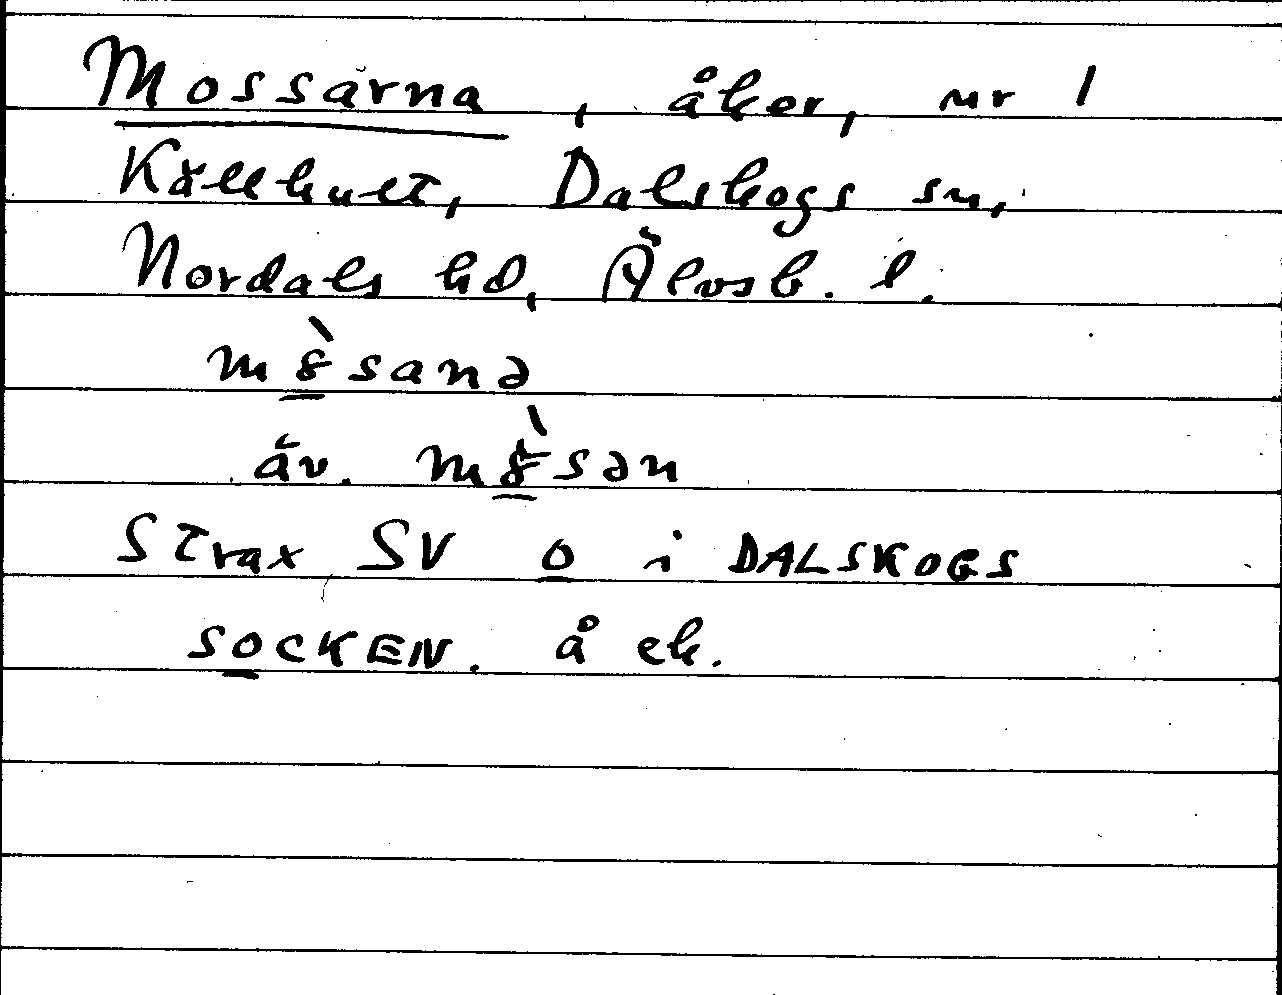 Mossarna, åker, nr 1
Källhult, Dalskogs sn,
Nordals hd, Älvsb. l.
mè̱sanə
äv. mè̱sən
Strax SV o̲ i DALSKOGS
SO̲CKEN. å ek.